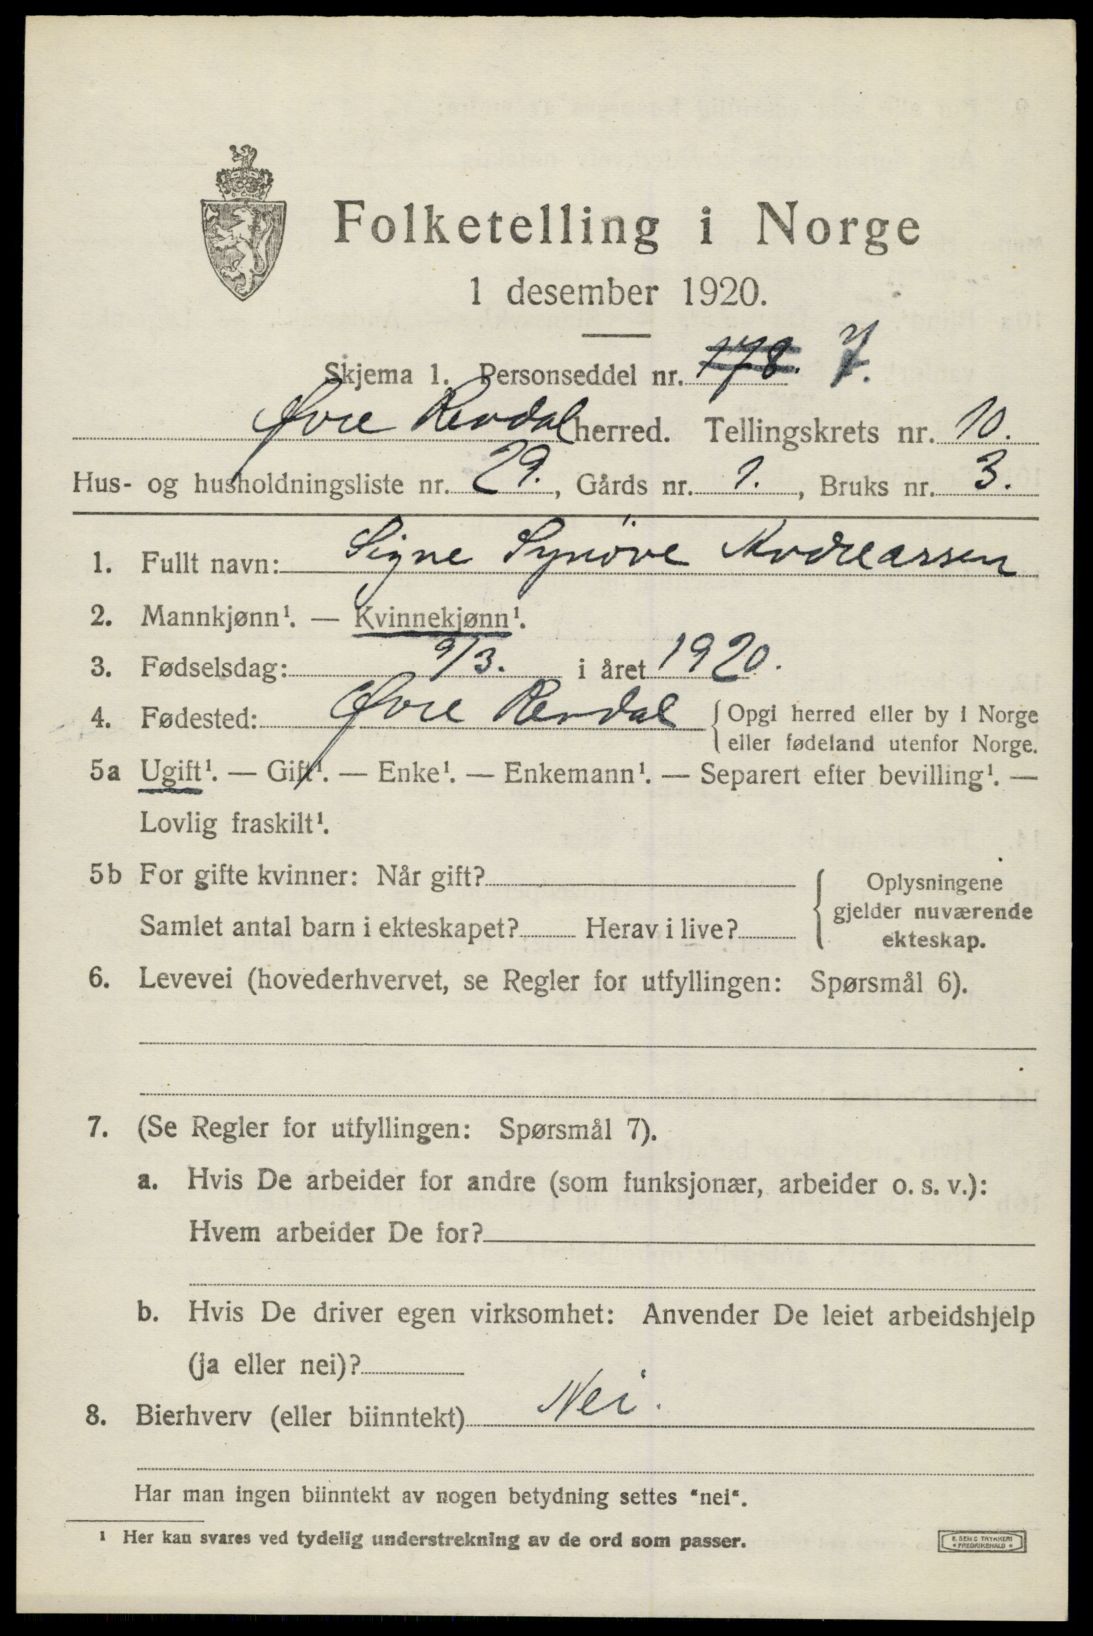 Folketelling i Norge
1 desember 1920.
Skjema 1. Personseddel nr. 178. 7.
Øvre Rendal herred. Tellingskrets nr. 10.
Hus- og husholdningsliste nr. 29., Gårds nr. 1., Bruks nr. 3.
1. Fullt navn: Signe Synöve Andreassen
2. Mannkjønn¹. — Kvinnekjønn¹.
3. Fødselsdag: 9/3. i året 1920.
4. Fødested: Øvre Rendal { Opgi herred eller by i Norge
eller fødeland utenfor Norge.
5a Ugift¹. — Gift¹. — Enke¹. — Enkemann¹. — Separert efter bevilling¹. —
Lovlig fraskilt¹.
5b For gifte kvinner: Når gift?
Samlet antal barn i ekteskapet? Herav i live?
{ Oplysningene
gjelder nuværende
ekteskap.
6. Levevei (hovederhvervet, se Regler for utfyllingen: Spørsmål 6).
7. (Se Regler for utfyllingen: Spørsmål 7).
a. Hvis De arbeider for andre (som funksjonær, arbeider o. s. v.):
Hvem arbeider De for?
b. Hvis De driver egen virksomhet: Anvender De leiet arbeidshjelp
(ja eller nei)?
8. Bierhverv (eller biinntekt) Nei.
Har man ingen biinntekt av nogen betydning settes "nei".
¹ Her kan svares ved tydelig understrekning av de ord som passer.